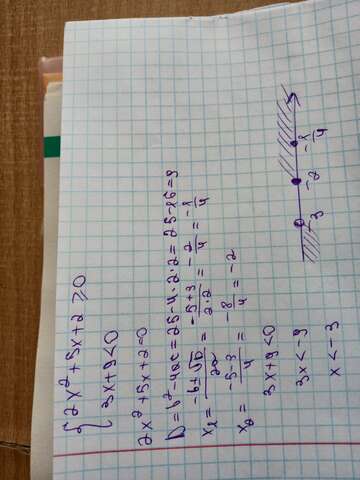 { 2x² + 5x + 2 ≥ 0
3x + 9 < 0
2x² + 5x + 2 = 0
D = b² - 4ac = 25 - 4 · 2 · 2 = 25 - 16 = 9
x₁ = (-b ± √D)/2a = (-5 + 3)/(2 · 2) = -2/4 = -1/4
x₂ = (-5 - 3)/4 = -8/4 = -2
3x + 9 < 0
3x < -9
x < -3
-3 -2 -1/4